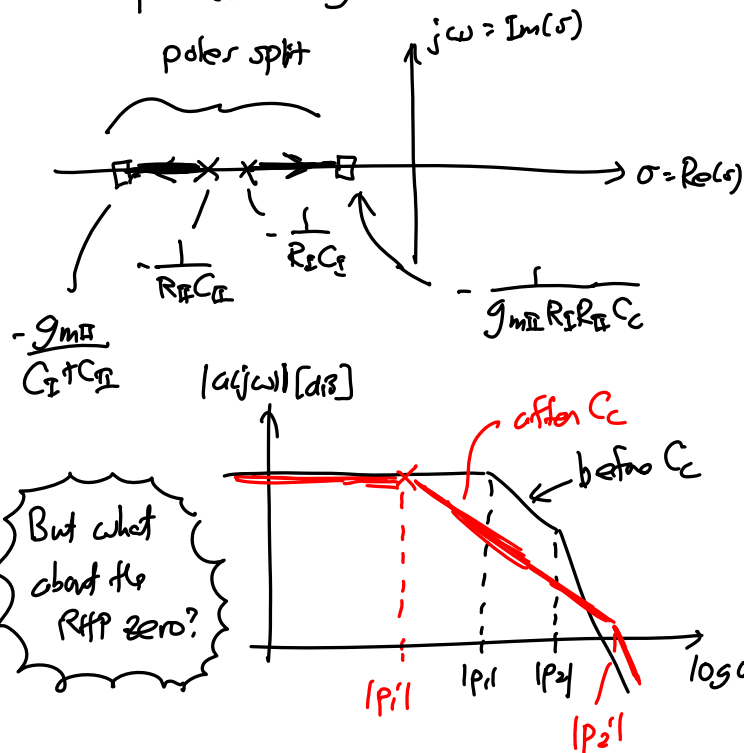 poles split
jω = Im(s)
σ = Re(s)
- 1/(R_I C_I)
- 1/(R_II C_II)
- 1/(g_mII R_I R_II C_c)
- g_mII/(C_I + C_II)
|a(jω)| [dB]
after C_c
before C_c
But what
about the
RHP zero?
log
|p_1| |p_2|
|p_1'|
|p_2'|